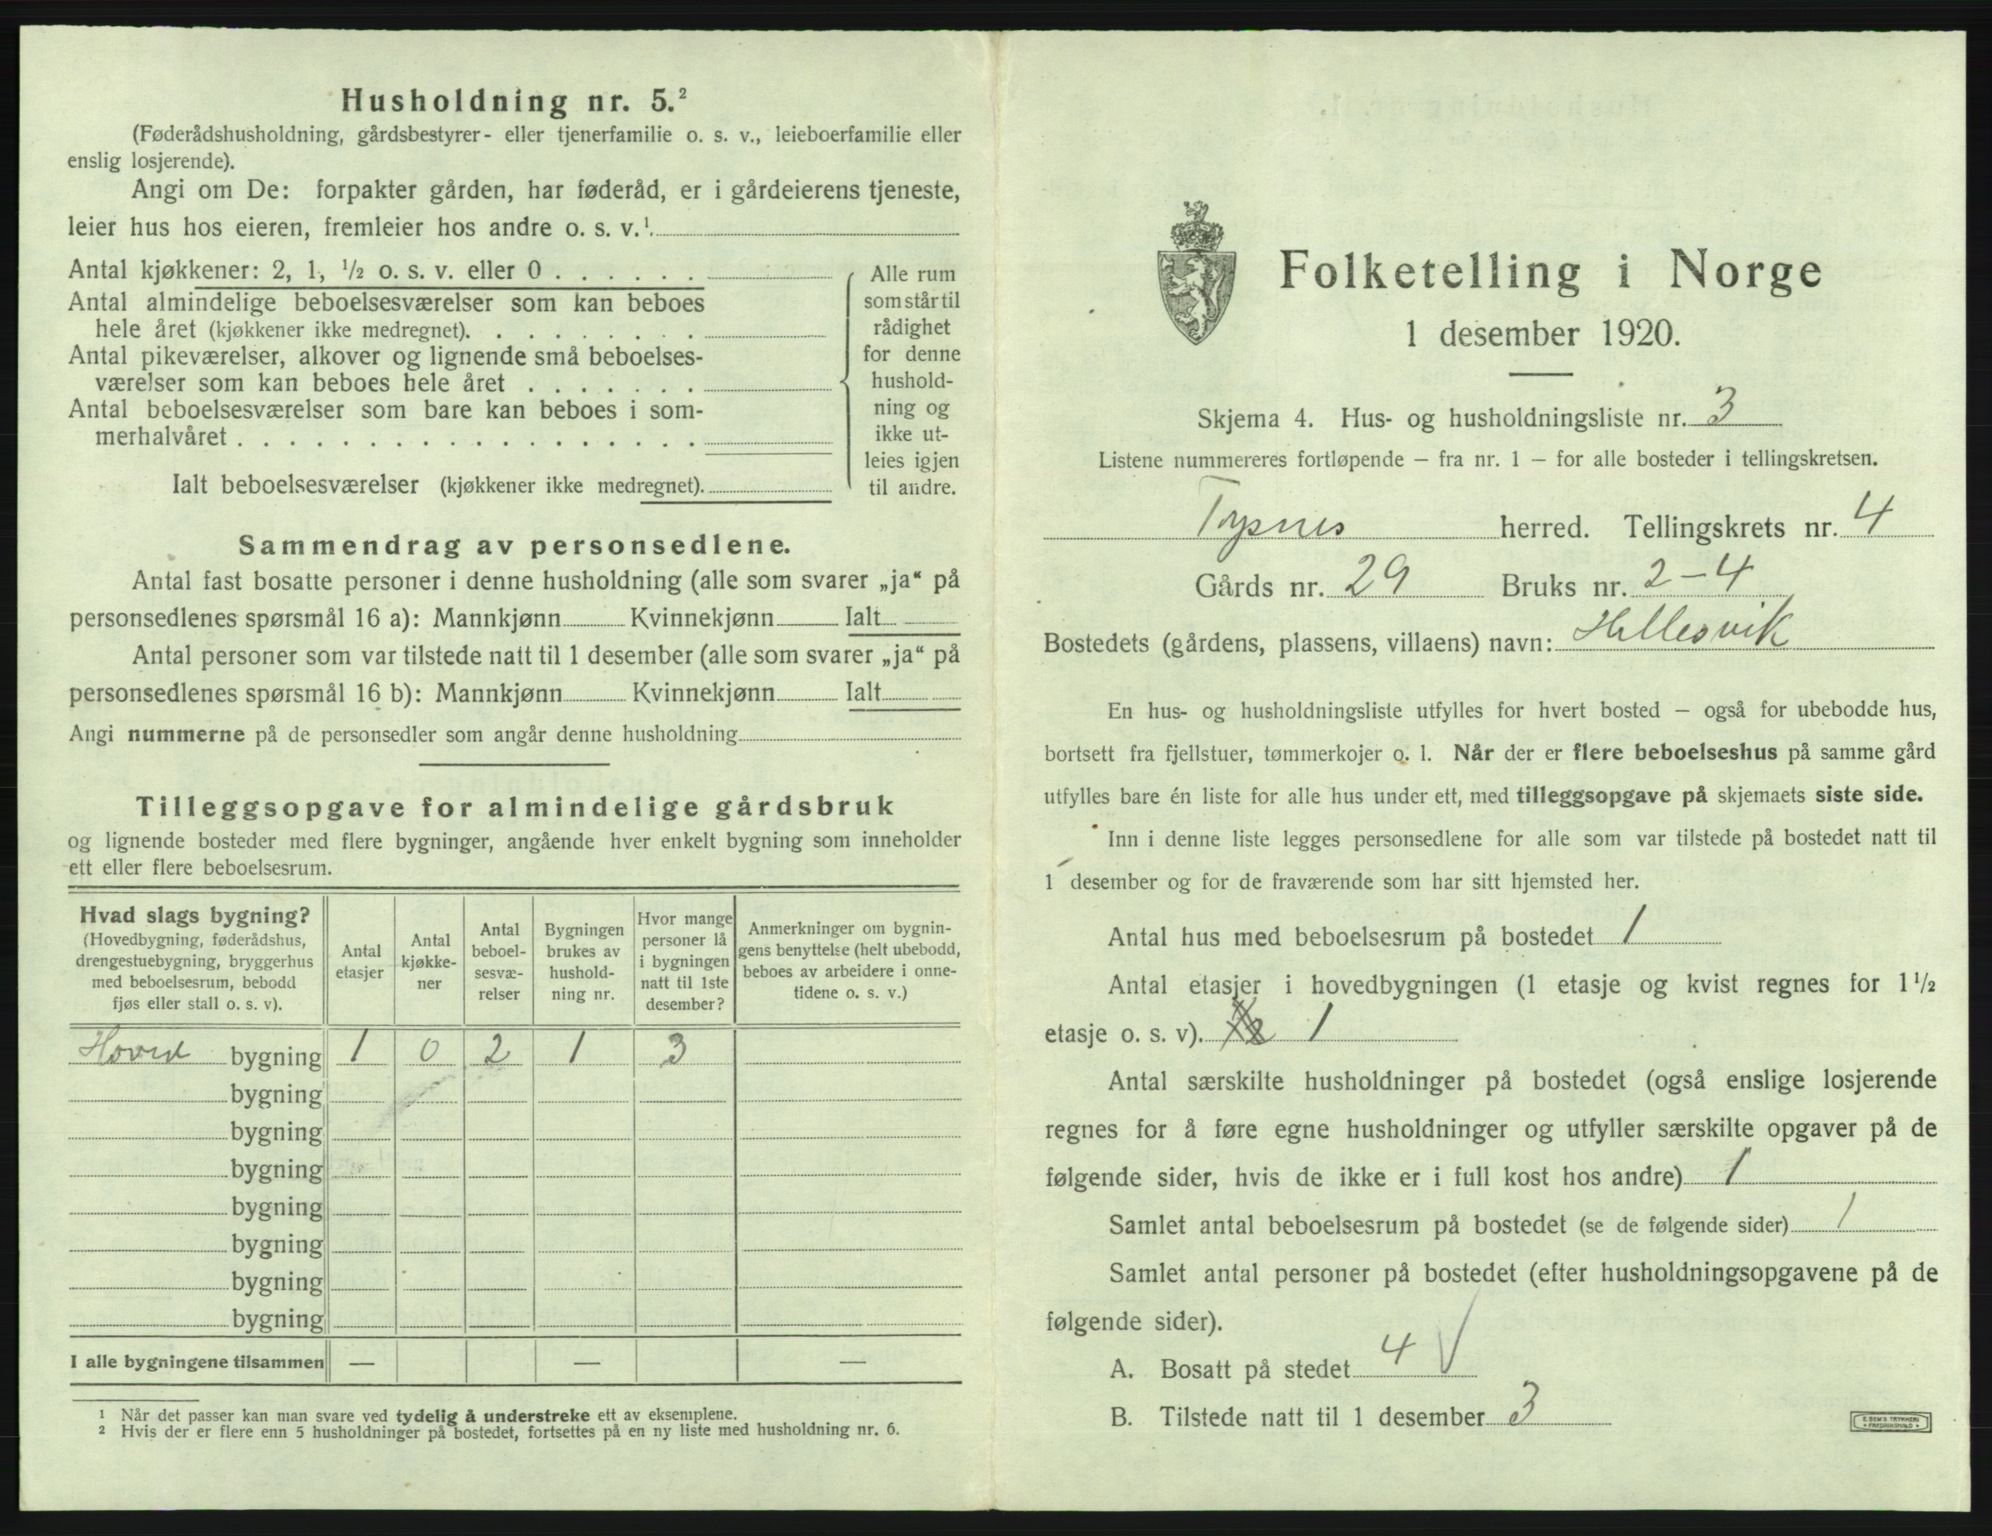 Husholdning nr. 5.²
(Føderådshusholdning, gårdsbestyrer- eller tjenerfamilie o. s. v., leieboerfamilie eller
enslig losjerende).
Angi om De: forpakter gården, har føderåd, er i gårdeierens tjeneste,
leier hus hos eieren, fremleier hos andre o. s. v.¹
Antal kjøkkener: 2, 1, ½ o. s. v. eller 0 . . . . . .
Antal almindelige beboelsesværelser som kan beboes
hele året (kjøkkener ikke medregnet). . . . . . . . .
Antal pikeværelser, alkover og lignende små beboelses-
værelser som kan beboes hele året . . . . . . .
Antal beboelsesværelser som bare kan beboes i som-
merhalvåret . . . . . . . . . . . . . . . . . .
Ialt beboelsesværelser (kjøkkener ikke medregnet).
Alle rum
som står til
rådighet
for denne
hushold-
ning og
ikke ut-
leies igjen
til andre.
Sammendrag av personsedlene.
Antal fast bosatte personer i denne husholdning (alle som svarer „ja“ på
personsedlenes spørsmål 16 a): Mannkjønn Kvinnekjønn Ialt
Antal personer som var tilstede natt til 1 desember (alle som svarer „ja“ på
personsedlenes spørsmål 16 b): Mannkjønn Kvinnekjønn Ialt
Angi nummerne på de personsedler som angår denne husholdning
Tilleggsopgave for almindelige gårdsbruk
og lignende bosteder med flere bygninger, angående hver enkelt bygning som inneholder
ett eller flere beboelsesrum.
Hvad slags bygning?
(Hovedbygning, føderådshus,
drengestuebygning, bryggerhus
med beboelsesrum, bebodd
fjøs eller stall o. s. v).
Antal
etasjer
Antal
kjøkke-
ner
Antal
beboel-
sesvæ-
relser
Bygningen
brukes av
hushold-
ning nr.
Hvor mange
personer lå
i bygningen
natt til 1ste
desember?
Anmerkninger om bygnin-
gens benyttelse (helt ubebodd,
beboes av arbeidere i onne-
tidene o. s. v.)
Hoved bygning 1 0 2 1 3
bygning
bygning
bygning
bygning
bygning
bygning
bygning
I alle bygningene tilsammen — — —
¹ Når det passer kan man svare ved tydelig å understreke ett av eksemplene.
² Hvis der er flere enn 5 husholdninger på bostedet, fortsettes på en ny liste med husholdning nr. 6.
Folketelling i Norge
1 desember 1920.
Skjema 4. Hus- og husholdningsliste nr. 3
Listene nummereres fortløpende – fra nr. 1 – for alle bosteder i tellingskretsen.
Tysnes herred. Tellingskrets nr. 4
Gårds nr. 29 Bruks nr. 2-4
Bostedets (gårdens, plassens, villaens) navn: Hillesvik
En hus- og husholdningsliste utfylles for hvert bosted – også for ubebodde hus,
bortsett fra fjellstuer, tømmerkojer o. l. Når der er flere beboelseshus på samme gård
utfylles bare én liste for alle hus under ett, med tilleggsopgave på skjemaets siste side.
Inn i denne liste legges personsedlene for alle som var tilstede på bostedet natt til
1 desember og for de fraværende som har sitt hjemsted her.
Antal hus med beboelsesrum på bostedet 1
Antal etasjer i hovedbygningen (1 etasje og kvist regnes for 1½
etasje o. s. v). 1
Antal særskilte husholdninger på bostedet (også enslige losjerende
regnes for å føre egne husholdninger og utfyller særskilte opgaver på de
følgende sider, hvis de ikke er i full kost hos andre) 1
Samlet antal beboelsesrum på bostedet (se de følgende sider) 1
Samlet antal personer på bostedet (efter husholdningsopgavene på de
følgende sider).
A. Bosatt på stedet 4
B. Tilstede natt til 1 desember 3